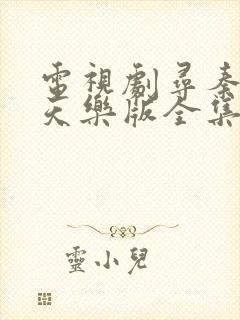 電視劇尋秦
天樂版全集
靈小兒